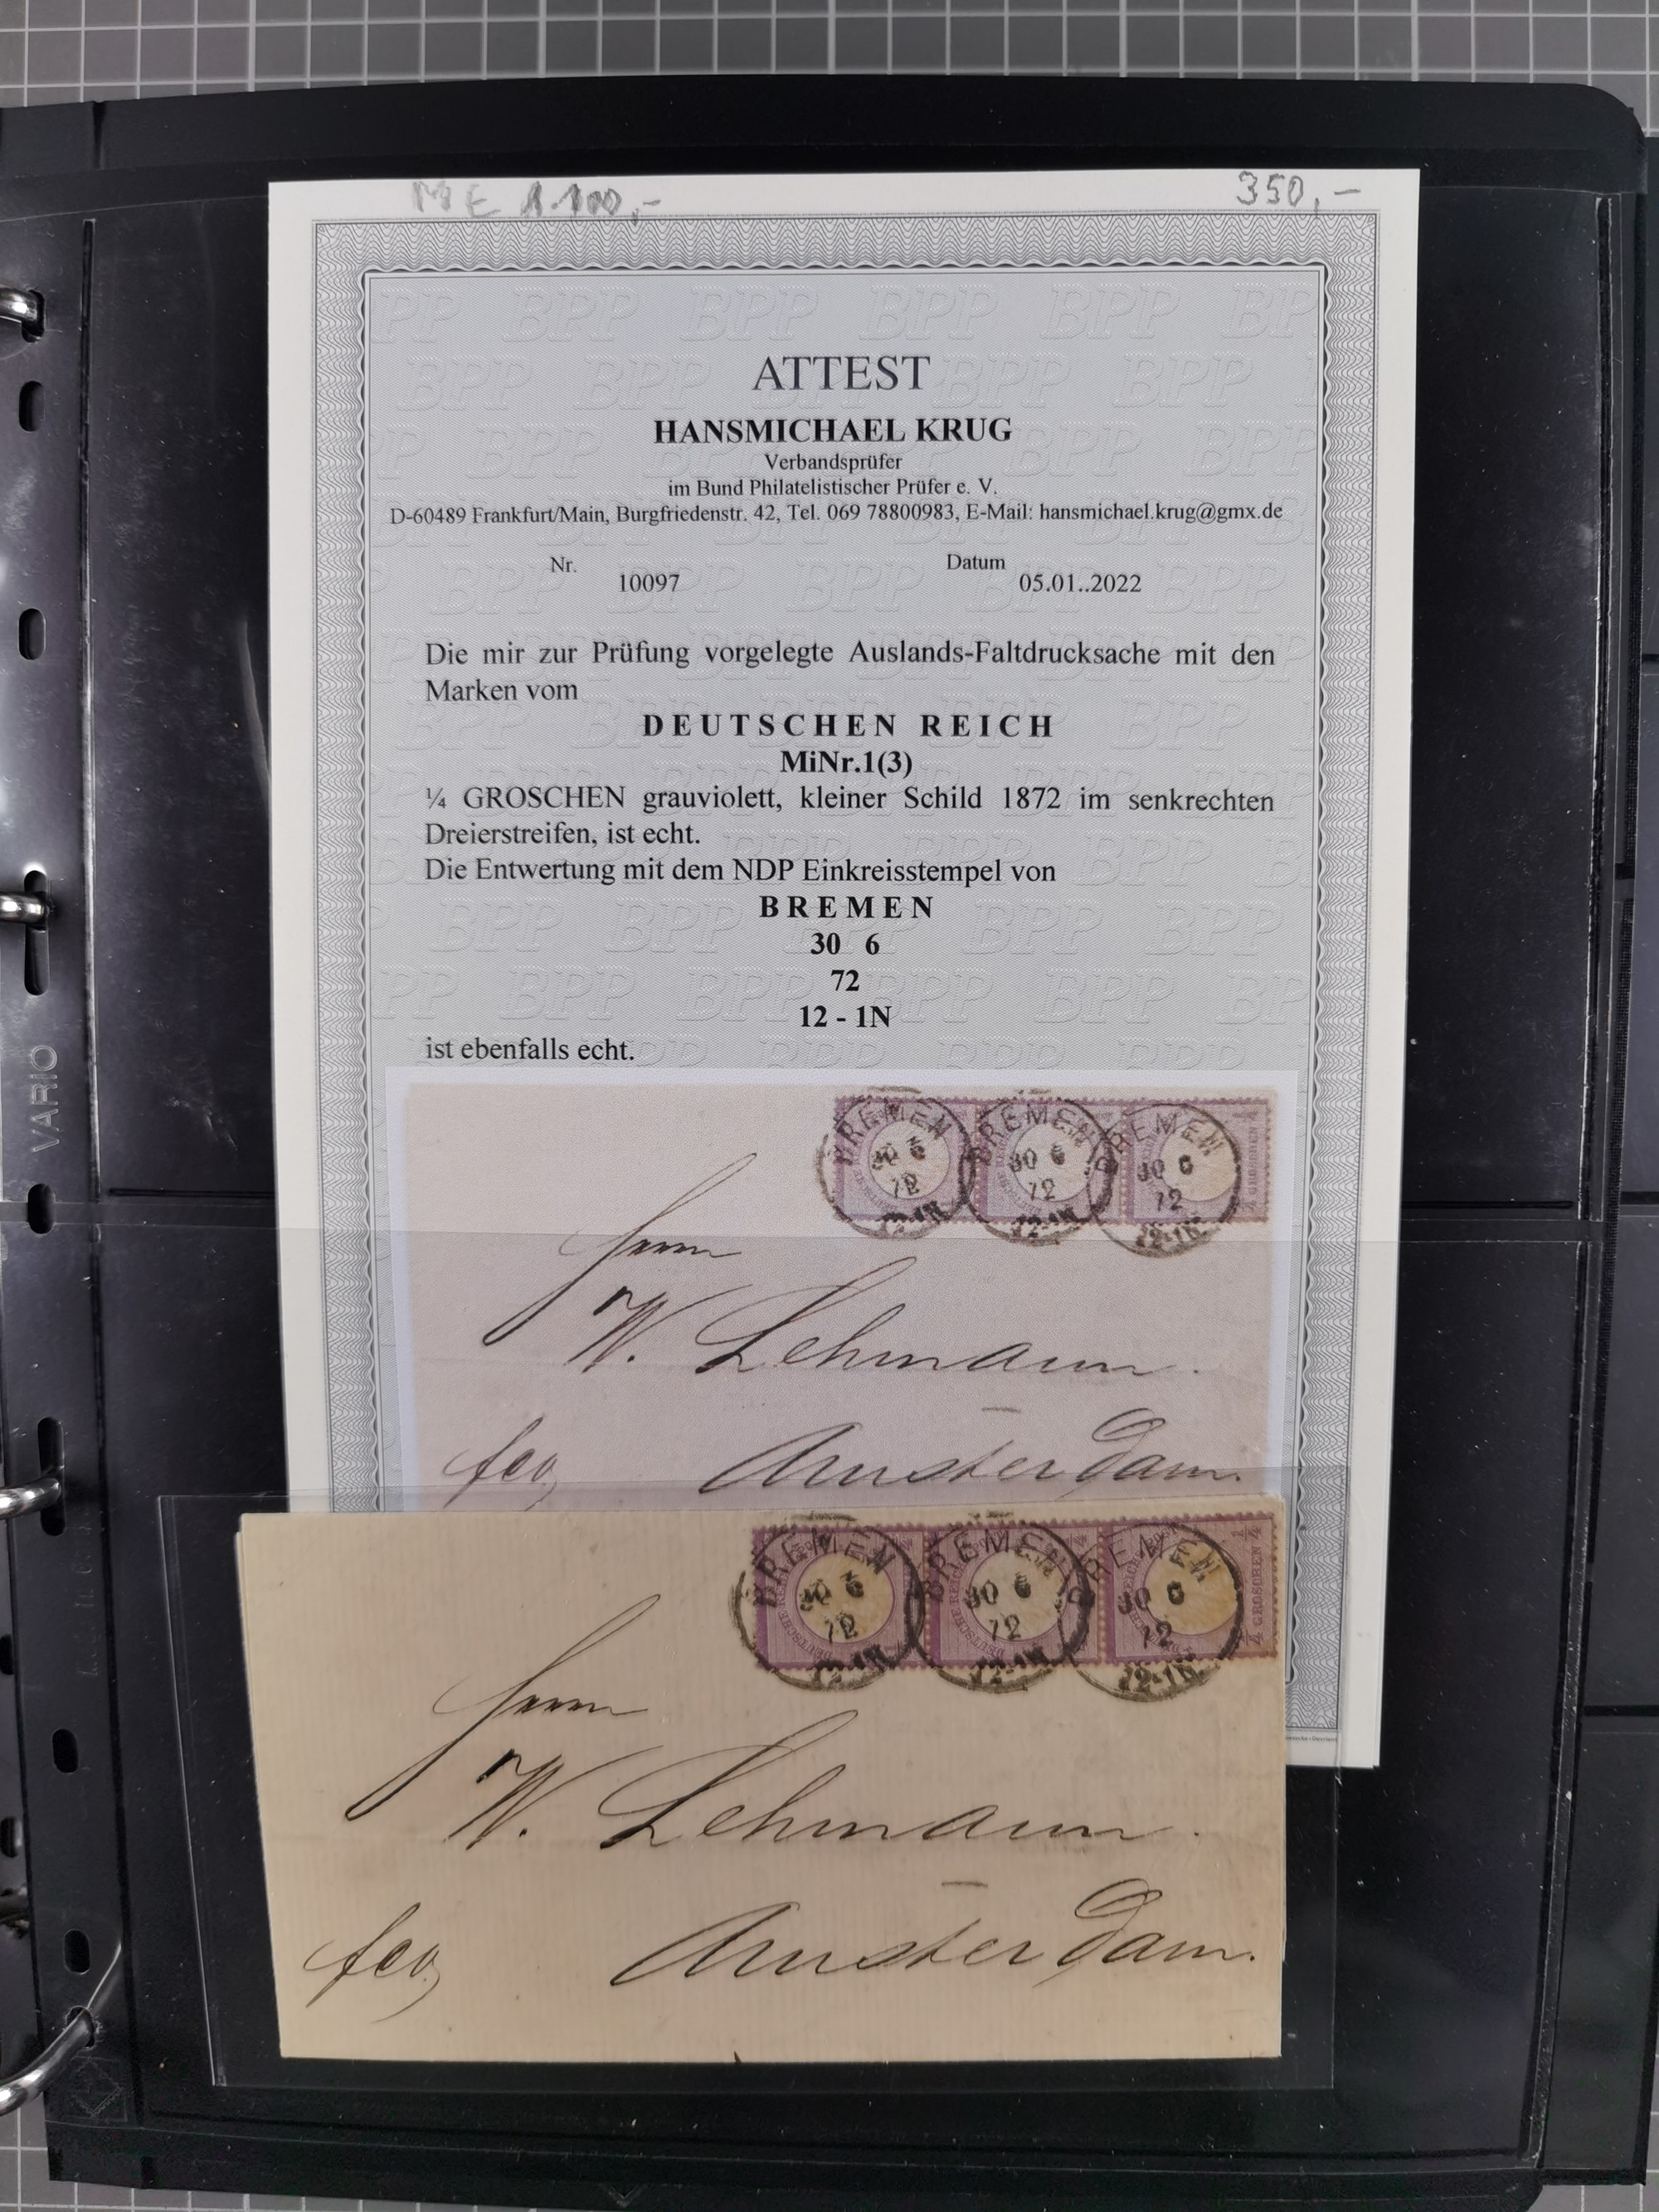 ME 1.100,- 350,-
ATTEST
HANSMICHAEL KRUG
Verbandsprüfer
im Bund Philatelistischer Prüfer e. V.
D-60489 Frankfurt/Main, Burgfriedenstr. 42, Tel. 069 78800983, E-Mail: hansmichael.krug@gmx.de
Nr. 10097 Datum 05.01..2022
Die mir zur Prüfung vorgelegte Auslands-Faltdrucksache mit den
Marken vom
DEUTSCHEN REICH
MiNr.1(3)
¼ GROSCHEN grauviolett, kleiner Schild 1872 im senkrechten
Dreierstreifen, ist echt.
Die Entwertung mit dem NDP Einkreisstempel von
BREMEN
30 6
72
12 - 1N
ist ebenfalls echt.
BREMEN BREMEN BREMEN
30 6 30 6 30 6
72 72 72
12-1N 12-1N 12-1N
Herrn
W. Lehmann.
fco
Amsterdam.
BREMEN BREMEN BREMEN
30 6 30 6 30 6
72 72 72
12-1N 12-1N 12-1N
¼ GROSCHEN ¼
Herrn
W. Lehmann.
fco
Amsterdam.
VARIO